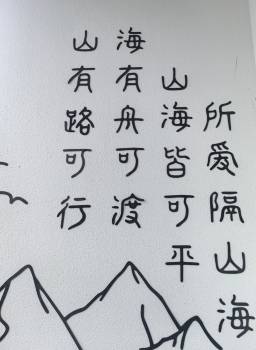 所爱隔山海
山海皆可平
海有舟可渡
山有路可行